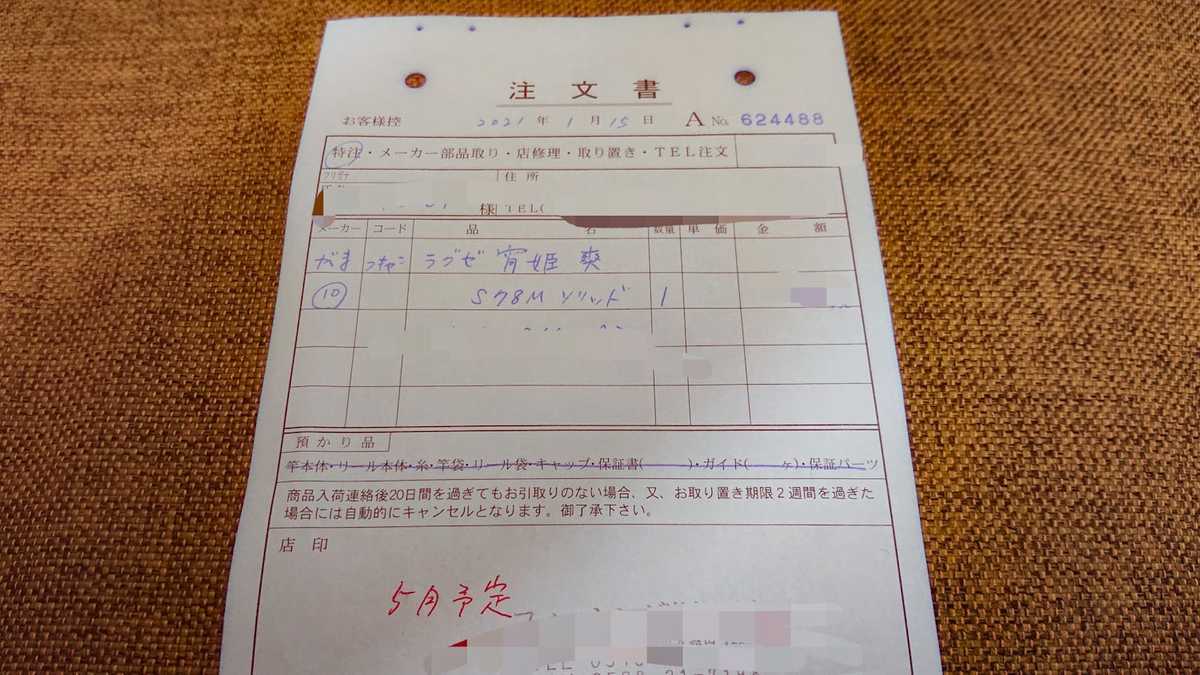 注文書
お客様控 2021年1月15日 A No. 624488
特注・メーカー部品取り・店修理・取り置き・TEL注文
フリガナ 住所
様 TEL(
メーカー コード 品名 数量 単価 金額
がま ラグゼ 宵姫 爽
10 S78M ソリッド 1
預かり品
竿本体・リール本体・糸・竿袋・リール袋・キャップ・保証書( )・ガイド( ヶ)・保証パーツ
商品入荷連絡後20日間を過ぎてもお引取りのない場合、又、お取り置き期限2週間を過ぎた
場合には自動的にキャンセルとなります。御了承下さい。
店印
5月予定